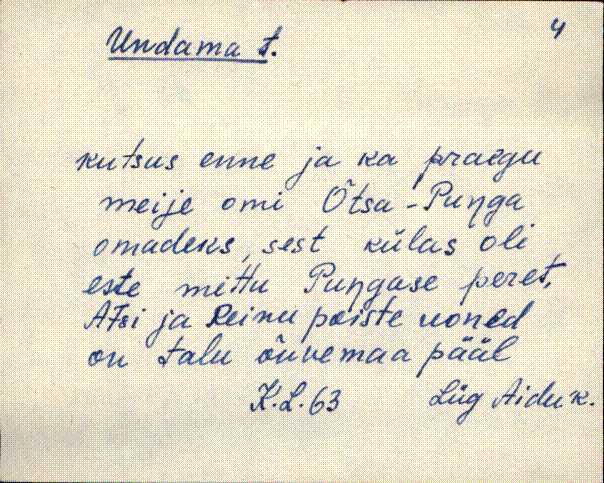 4
Undama t.
kutsus enne ja ka praegu
meije omi Õtsa-Puŋga
omadeks, sest külas oli
este mittu Puŋgase peret,
Atsi ja Reinu poiste uoned
on talu õuvemaa pääl
K.L. 63 Lüg Aidu k.